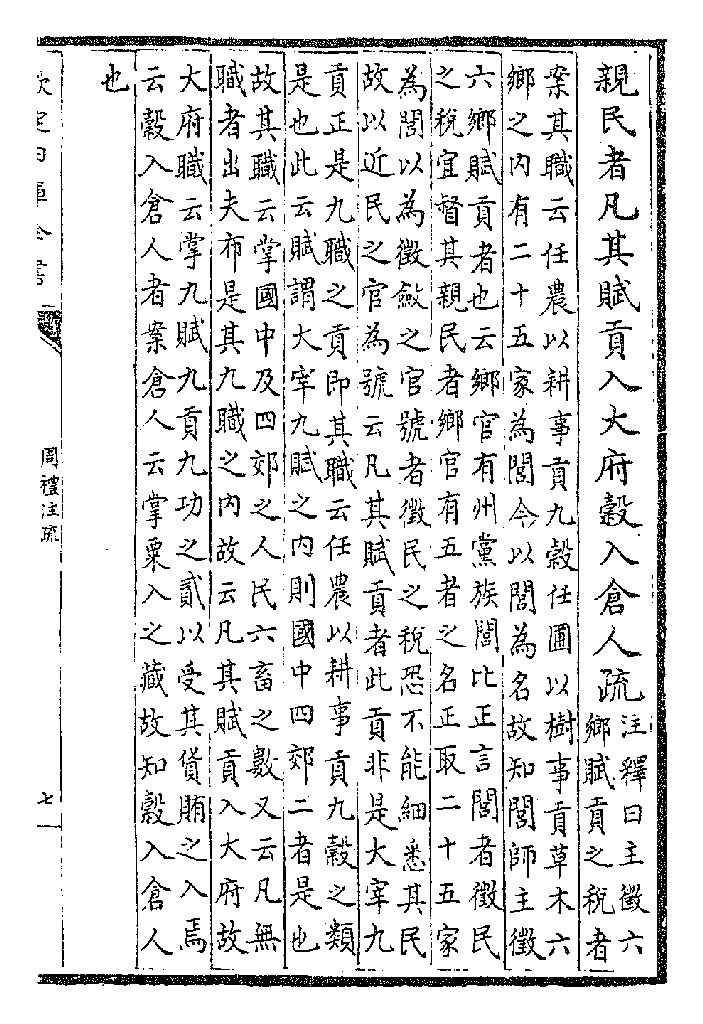 親民者凡其賦貢入大府穀入倉人疏注釋曰主徵六
鄉賦貢之稅者
案其職云任農以耕事貢九穀任圃以樹事貢草木六
鄉之内有二十五家為閭今以閭為名故知閭師主徵
六鄉賦貢者也云鄉官有州黨族閭比正言閭者徵民
之稅宜督其親民者鄉官有五者之名正取二十五家
為閭以為徵斂之官號者徵民之稅恐不能細悉其民
故以近民之官為號云凡其賦貢者此貢非是大宰九
貢正是九職之貢即其職云任農以耕事貢九穀之類
是也此云賦謂大宰九賦之内則國中四郊二者是也
故其職云掌國中及四郊之人民六畜之數又云凡無
職者出夫布是其九職之内故云凡其賦貢入大府故
大府職云掌九賦九貢九功之貳以受其貨賄之入焉
云穀入倉人者案倉人云掌粟入之藏故知穀入倉人
也
欽定四庫全書
周禮注疏
七一